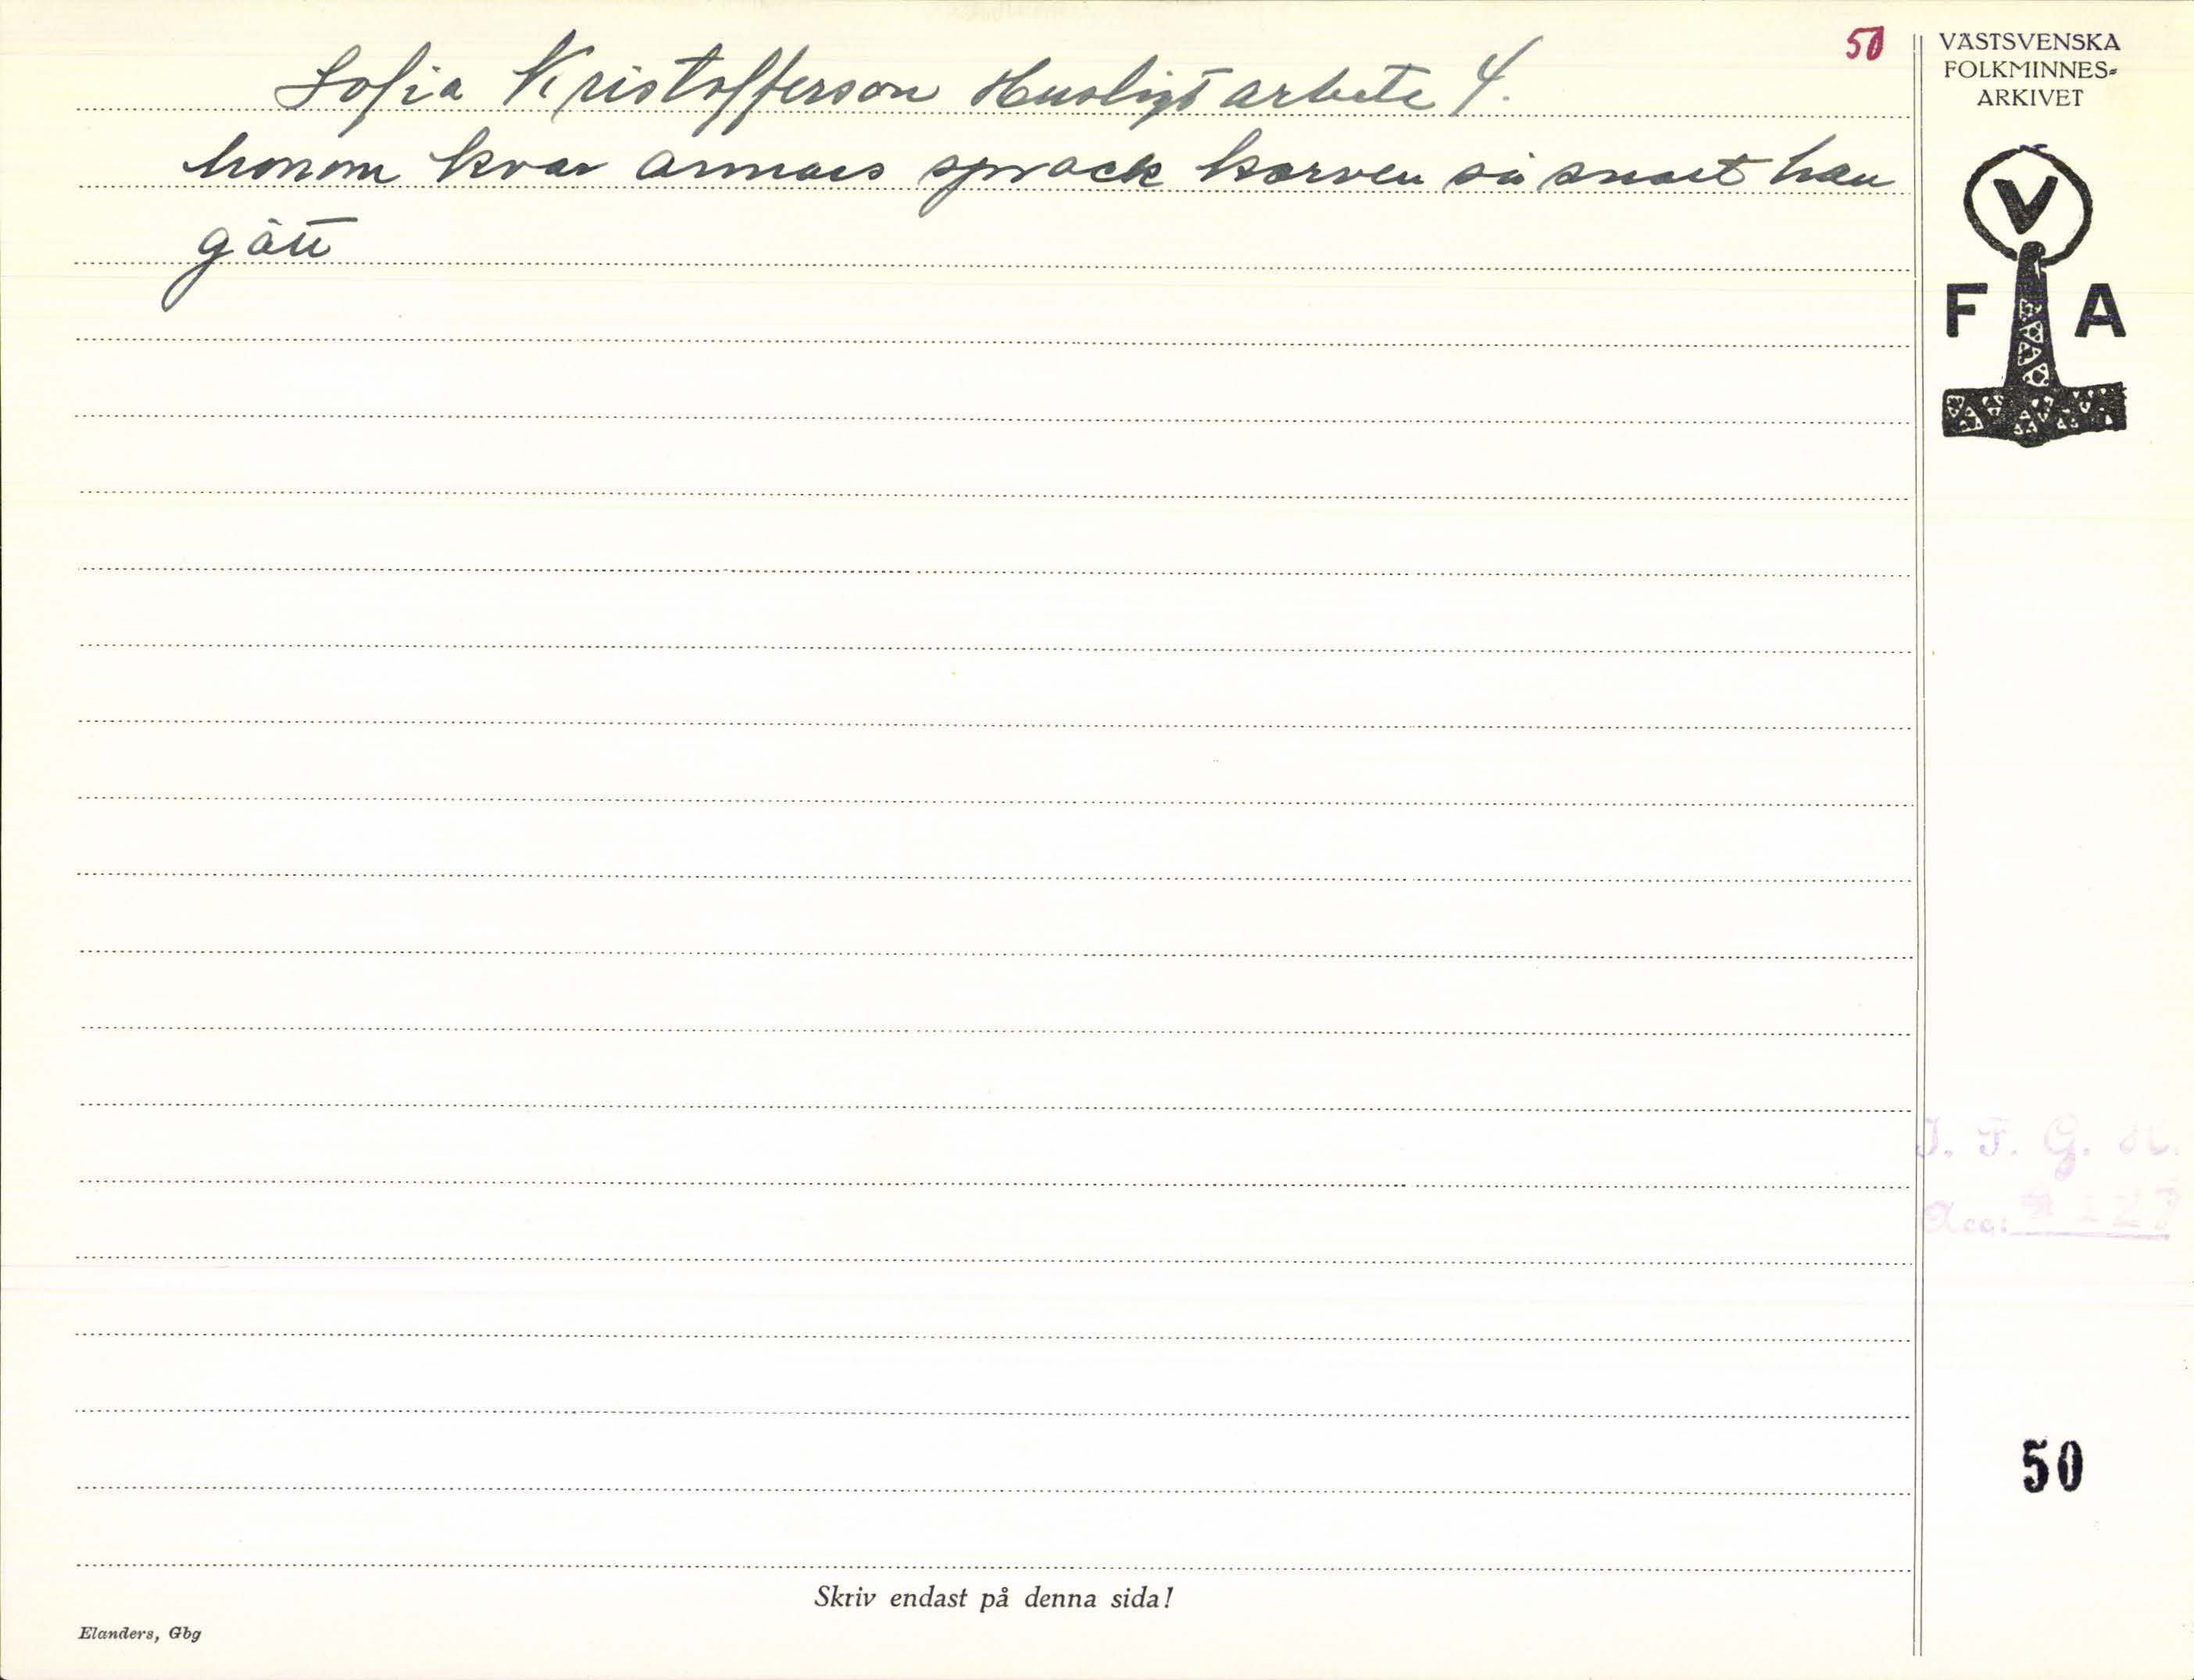 50
Sofia Kristofferson Husligt arbete 4.
honom kvar annars sprack korven så snart han
gått
VÄSTSVENSKA
FOLKMINNES-
ARKIVET
V
F A
I. F. G. H.
Acc: 127
50
Skriv endast på denna sida!
Elanders, Gbg